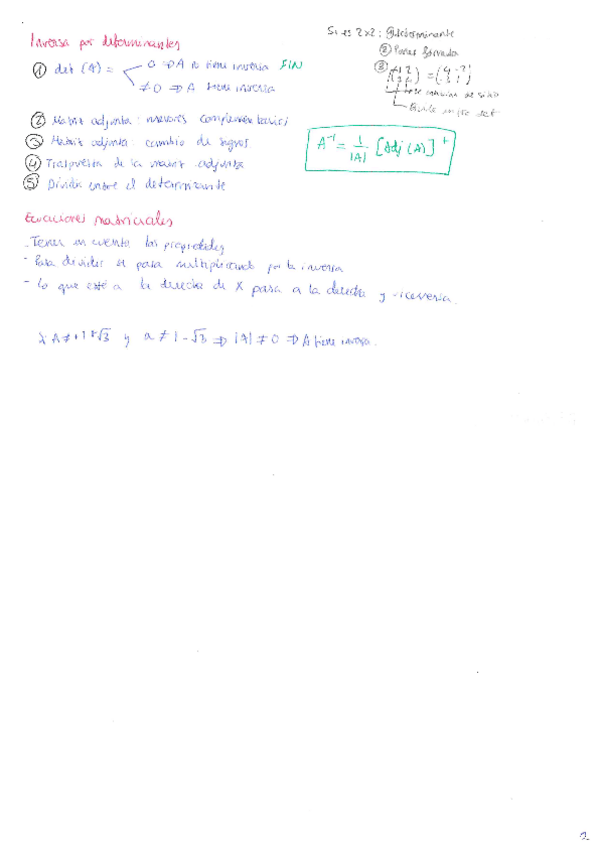 Inversa por determinantes
Si es 2x2: ① determinante
② Poner fórmula
① det (A) = 0 ⇒ A no tiene inversa FIN
≠ 0 ⇒ A tiene inversa
② Matriz adjunta: menores complementarios
③ Matriz adjunta: cambio de signos
④ Traspuesta de la matriz adjunta
⑤ Dividir entre el determinante
A⁻¹ = 1/|A| · [Adj (A)]ᵗ
Ecuaciones matriciales
- Tener en cuenta las propiedades
- Para dividir se pasa multiplicando por la inversa
- Lo que esté a la derecha de X pasa a la derecha y viceversa.
y a ≠ 1-√3 ⇒ |A| ≠ 0 ⇒ A tiene inversa.
2